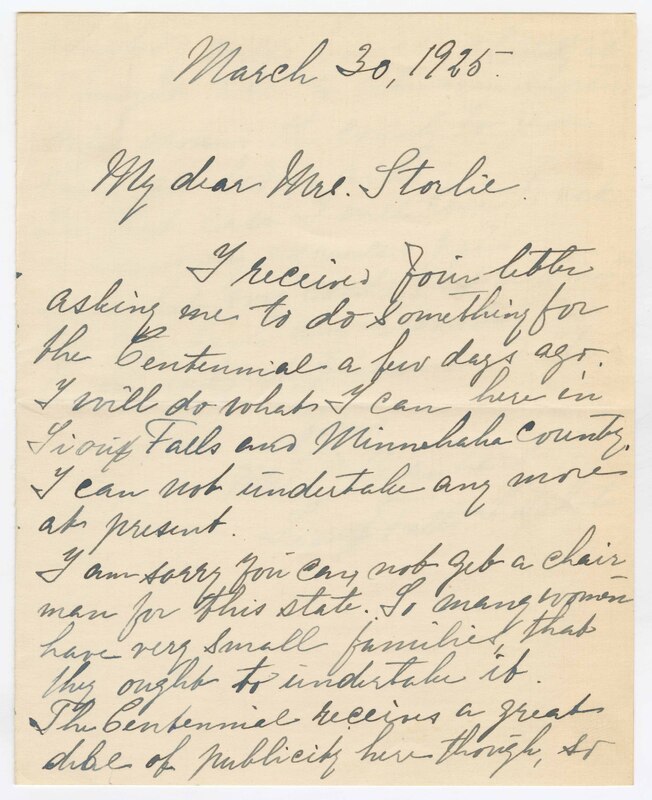 March 30, 1925.
My dear Mrs. Storlie.
I received your letter
asking me to do something for
the Centennial a few days ago.
I will do what I can here in
Sioux Falls and Minnehaha County.
I can not undertake any more
at present.
I am sorry you can not get a chair
man for this state. So many women
have very small families, that
they ought to undertake it.
The Centennial receives a great
deal of publicity here though, so